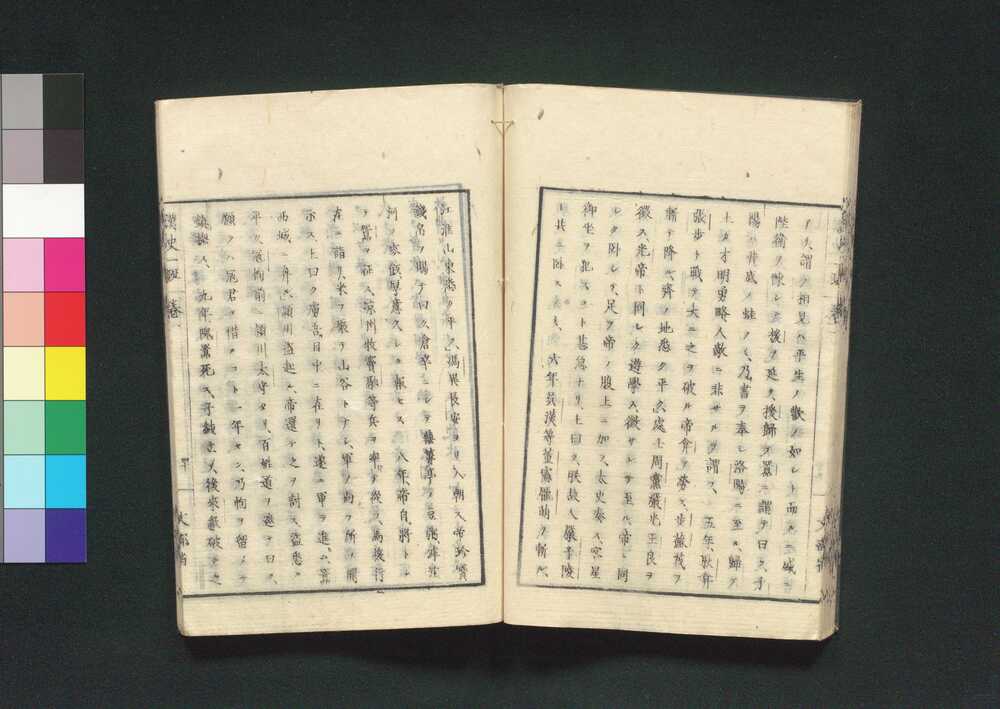 ノ人謂ク相見ハ平生ノ歓ノ如シト而ルニ城ニ
陛衛ヲ陳シ援ヲ延ク、援歸ス囂ニ謂テ曰ク、子
陽ハ井底ノ蛙ノミ、乃書ヲ奉シ洛陽ニ至ル、歸テ
上ノ才明勇略人敵ニ非サルヲ謂フ、五年、耿弇
張歩ト戰テ大ニ之ヲ破ル帝弇ヲ勞ス、歩蘇茂ヲ
斬テ降ル、齊ノ地悉ク平ク、處士周黨嚴光王良ヲ
徴ス光帝ト同シク遊學ス徴サレテ至ル、帝ト同
シク卧シテ、足ヲ帝ノ腹上ニ加フ、太史奏ス、客星
御坐ヲ犯スコト甚急ナリ、上曰ク、朕故人嚴子陵
ト共ニ卧スルノミ、六年呉漢等董憲龐萌ヲ斬ル、
江淮山東悉ク平ク、馮異長安ヨリ入朝ス帝珍寶
錢帛ヲ賜テ曰ク、倉卒ニシテ蕪蔞亭ノ豆粥、滹沱
河ノ麥飯、厚意久シク報セス、八年、帝自、將トシ
テ囂ヲ征ス、涼州牧竇融等兵ヲ率テ從フ、馬援行
在ニ詣リ、米ヲ聚テ山谷トナシ、軍ノ向フ所ヲ開
示ス上曰ク虜吾目中ニ在リト、遂ニ軍ヲ進ム、囂
西城ニ奔ル潁川盗起ル、帝還テ之ヲ討ス盗悉ク
平ク、寇恂前ニ潁川太守タリ、百姓道ヲ遮テ曰ク、
願クハ寇君ヲ借ルコト一年セン、乃恂ヲ留メテ
鎮撫ス、九年隗囂死ス、子純立ツ、後來歙破テ之
漢史一班 卷
文部省